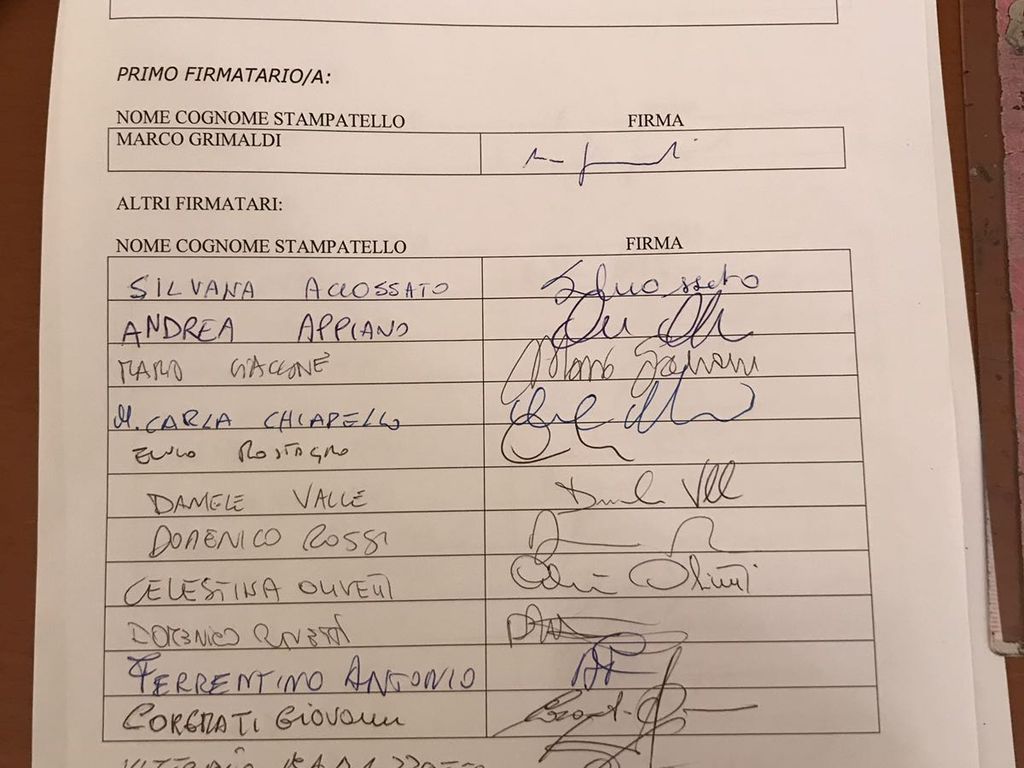 PRIMO FIRMATARIO/A:
NOME COGNOME STAMPATELLO FIRMA
MARCO GRIMALDI
ALTRI FIRMATARI:
NOME COGNOME STAMPATELLO FIRMA
SILVANA ACCOSSATO
ANDREA APPIANO
MARIO GIACCONE
M. CARLA CHIAPELLO
ENRICO ROSTAGNO
DANIELE VALLE
DOMENICO ROSSI
CELESTINA OLIVETTI
DOMENICO RAVETTI
FERRENTINO ANTONIO
CORGNATI GIOVANNI